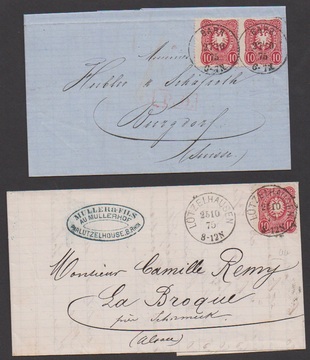 BARR
10
BARR
10
Messieurs
Schafroth
Burgdorf
Suisse
MULLER & FILS
AU MULLERHOF
LUTZELHOUSE
LÜTZELHAUSEN
25 10
75
8-12N
LÜTZELHAUSEN
10
Monsieur Camille Remy
La Broque
près Schirmeck
(Alsace)